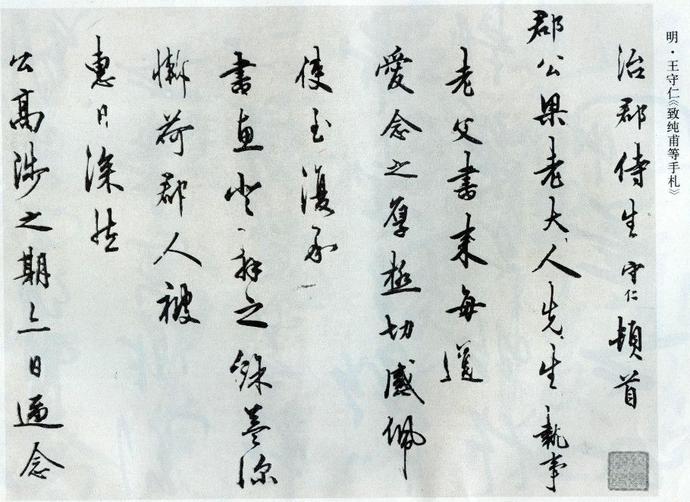 明·王守仁《致纯甫等手札》
治郡侍生守仁頓首
郡公梁老大人先生執事
老父書來每道
愛念之厚極切感佩
使至復承
書惠登拜之餘益深
慚荷郡人被
惠日深然
公高陟之期亦日逼念